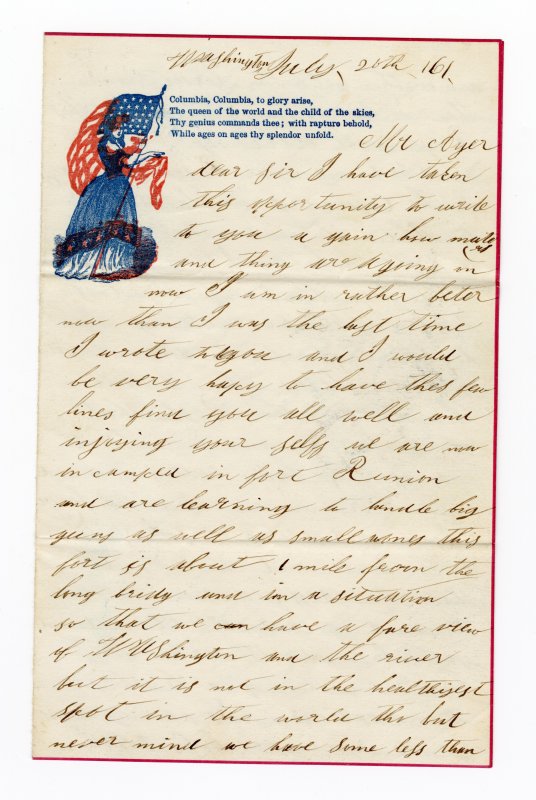 Washington July 20th /61.
Columbia, Columbia, to glory arise,
The queen of the world and the child of the skies,
Thy genius commands thee; with rapture behold,
While ages on ages thy splendor unfold.
Mr Ayer
dear sir I have taken
this opportunity to write
to you a gain how
and thing are a going on
now I am in rather beter
now than I was the last time
I wrote to you and I would
be very happy to have thes few
lines find you all well and
injoying your self we are now
in camped in fort Runion
and are learning to handle big
guns as well as small wones this
fort is about 1 mile from the
long bridg and in a situation
so that we can have a fare view
of WAShington and the river
but it is not in the healthyest
spot in the world tho but
never mind we have some less than